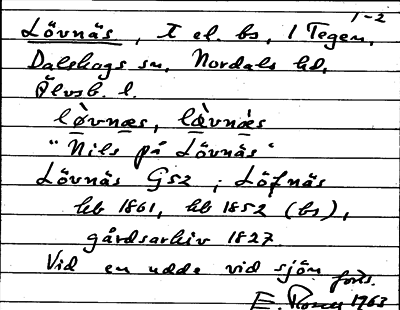 1-2
Lövnäs, t el. bs, 1 Tegen,
Dalskogs sn, Nordals hd,
Älvsb. l.
lø̀vnæs, læ̀vnæ̀s
"Nils på Lövnäs"
Lövnäs G52; Löfnäs
hb 1861, hb 1852 (bs),
gårdsarkiv 1827.
Vid en udde vid sjön
forts.
E. 1963